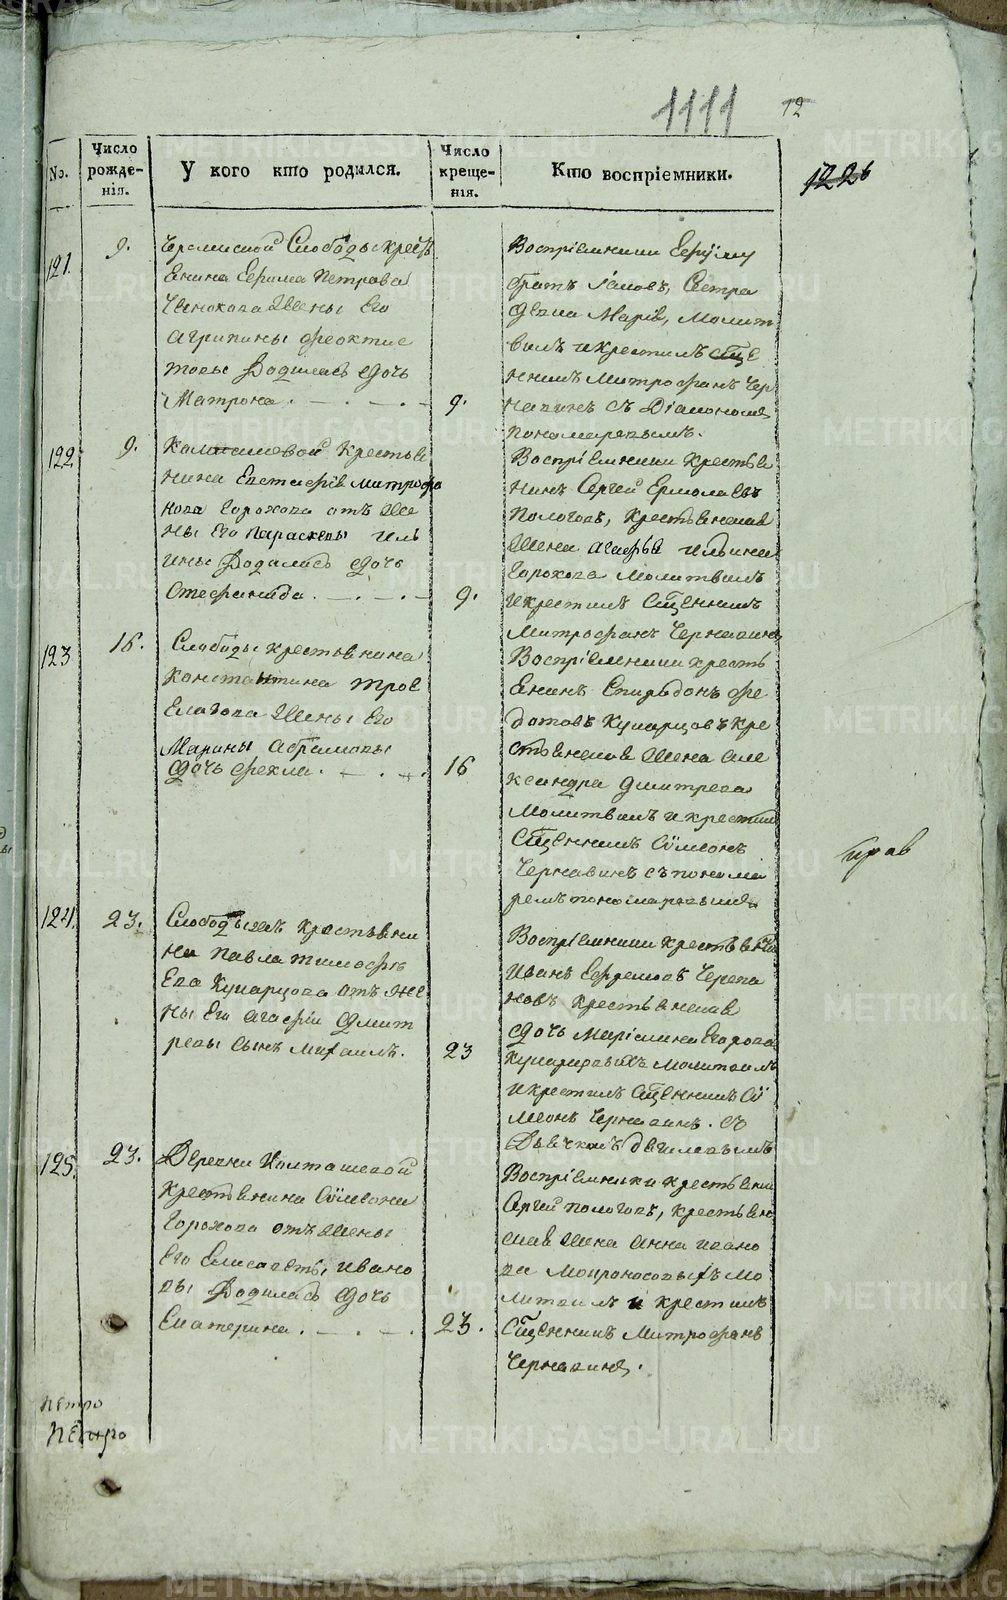 1111 12
1226
No.
Число рожде-нія.
У кого кто родился.
Число креще-нія.
Кто воспріемники.
121.
9.
Слободы крест
енина Ефима Петрова
жены Его
Агрипины Феоктис
товы Родилась дочь
Матрона
9.
Воспріемники Ефиму
братъ
девка Марія, молит
вилъ и крестилъ Сще
нникъ Митрофанъ Чер
навинъ съ Діакономъ
пономаревымъ.
122
9.
Колташевой Крестья
нина Евстафія Митрофа
нова Горохова отъ Же
ны Его Параскевы Иль
ины Родилась дочь
Стефанида
9.
Воспріемники крестья
нинъ Сергей Ермолаевъ
Пологовъ, Крестьянская
Жена Агафья Ильина
Горохова молитвилъ
и крестилъ Сщенникъ
Митрофанъ Чернавинъ
123
16.
Слободы крестьянина
Константина
Жены Его
Марины Абрамовы
дочь Фекла
16
Воспріемники кресть
янинъ Спиридонъ Фе
дотовъ Кунарцовъ кре
стьянская Жена Але
ксандра Дмитрева
Молитвилъ и крестилъ
Сщенникъ Сѵмеонъ
Чернавинъ съ понома
ремъ пономаревымъ
124.
23.
Слободы Крестьяни
на Павла Тимофѣ
ева Кунарцова отъ Же
ны Его Агафіи Дмит
ревы Сынъ Михаилъ.
23
Воспріемники крестьянинъ
Иванъ Ефремовъ Черепа
новъ крестьянская
дочь Егорова
Кунарцовыхъ молитвилъ
и крестилъ Сщенникъ Сѵ
меонъ Чернавинъ. Съ
Дьячкомъ
125.
23.
Деревни Колташевой
Крестьянина Сѵмеона
Горохова отъ Жены
Его Елисаветы Ивано
вы Родилась дочь
Екатерина
23.
Воспріемники крестьянинъ
Сергей Пологовъ, крестьян
ская Жена Анна Ивано
ва Мокроносовыхъ мо
литвилъ и крестилъ
Сщенникъ Митрофанъ
Чернавинъ.
Петро
Петро
METRIKI.GASO-URAL.RU